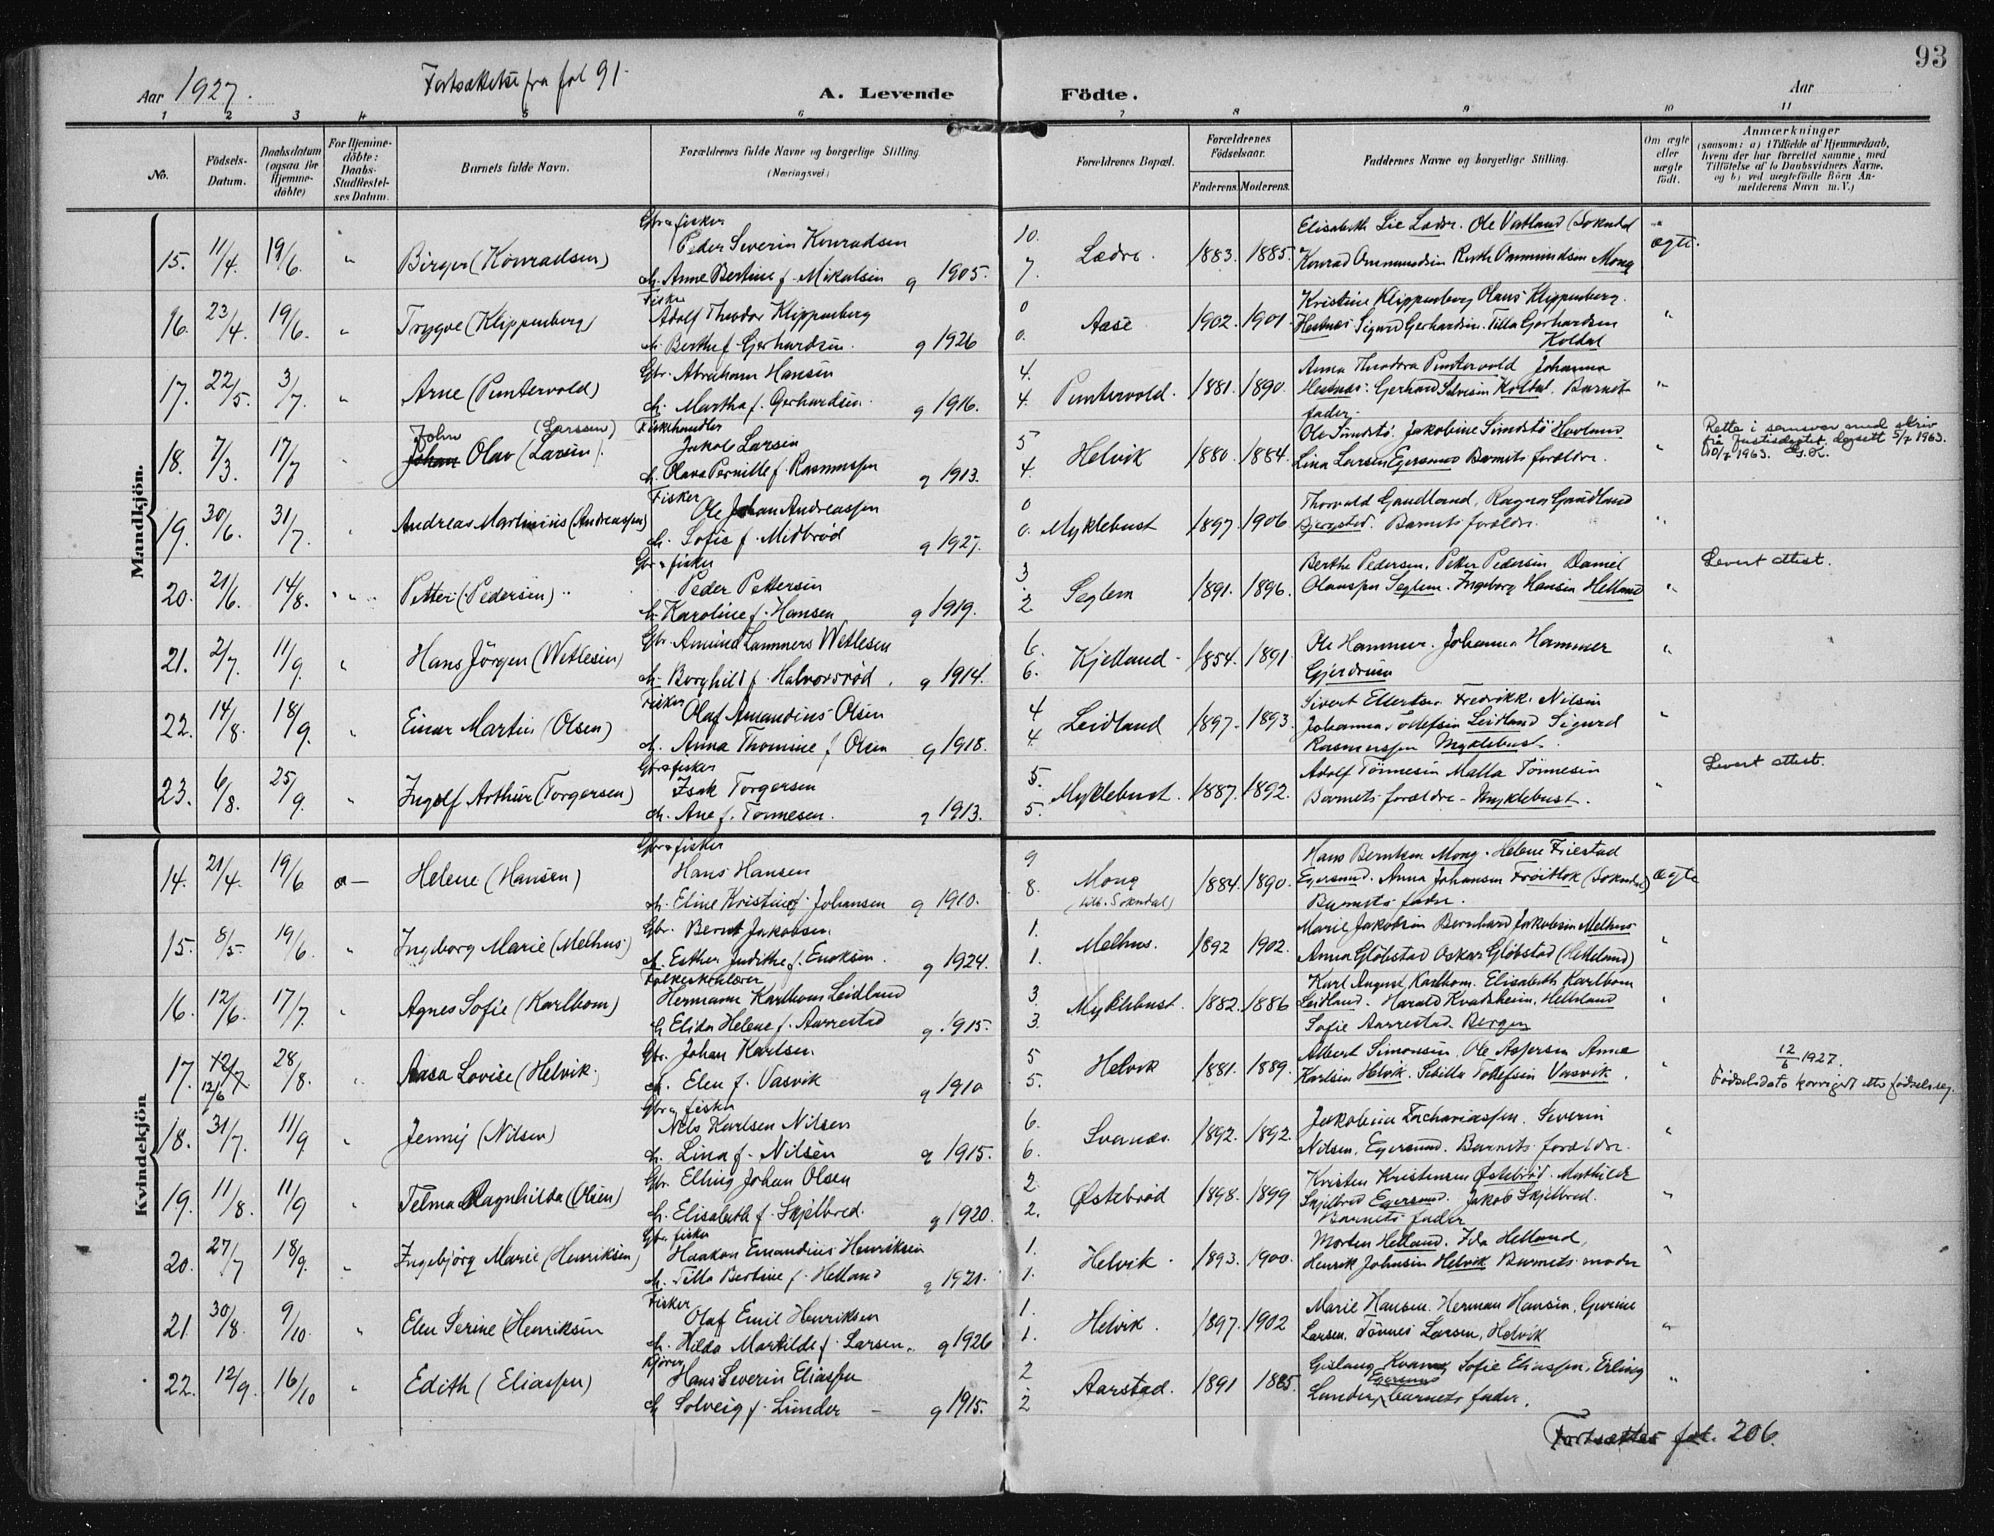 93
Aar 1927. Fortsættelse fra fol 91. A. Levende Födte. Aar
1 2 3 4 5 6 7 8 9 10 11
No. Födsels-Datum. Daabsdatum (ogsaa for Hjemme-döbte) For Hjemme-döbte: Daabs-Stadfæstel-ses Datum. Barnets fulde Navn. Forældrenes fulde Navne og borgerlige Stilling. (Næringsvei) Forældrenes Bopæl. Forældrenes Födselsaar. Faderens. Moderens. Faddernes Navne og borgerlige Stilling. Om ægte eller uægte födt. Anmærkninger (saasom: a) i Tilfælde af Hjemmedaab, hvem der har forrettet samme, med Tilföielse af to Daabsvidners Navne, og b) ved uegtefödte Börn An-melderens Navn m.V.)
Mandkjön.
Gbr. & fisker 10. Elisabeth Lie Lædre. Ole Vatland (Sokndal
15. 11/4. 19/6. " Birger (Konradsen) Peder Severin Konradsen Lædre. 1883. 1885. ægte.
h. Anne Bertine f. Mikalsen g 1905. 7. Konrad Ommundsen Mong
Fisker 0 Kristine Klippenberg Olaus Klippenberg.
16. 23/4. 19/6. " Trygve (Klippenberg) Adolf Theodor Klippenberg Aase 1902. 1901. Hestnes Sigurd Gerhardsen. Tilla Gerhardsen "
h. Berthe f. Gerhardsen. g 1926 0. Koldal
Gbr. Abraham Hansen 4. Anna Theodora Puntervold Johanna
17. 22/5. 3/7. " Arne (Puntervold) Puntervold. 1881. 1890. Hestnes. Gerhard Koldal. Barnets "
h. Martha f. Gerhardsen. g 1916. 4. fader.
John (Larssen) Fiskehandler 5 Ole Sundstö. Jakobine Sundstö Hovland
18. 7/3. 17/7 Johan Olav (Larsen). Jakob Larsen Helvik 1880. 1884. Lina Larsen Egersund Barnets forældre. " Retta i samsvar med skriv
h. Olava Pernille f. Rasmussen g 1913. 4. frå Justisdeptet. dagsett 5/7 1963.
10/7 1963.
Fisker 0 Thorvald Gaudland, Ragna Gaudland
19. 30/6. 31/7. " Andreas Martinius (Andreassen) Ole Johan Andreassen Myklebust 1897. 1906. Barnets forældre. "
h. Sofie f. Midbrød g 1927. 0.
Gbr. & fisker 3. Berthe Pedersen. Peter Pedersen Daniel Levert attest.
20. 21/6. 14/8. " Petter (Pedersen) Peder Pettersen Seglem 1891. 1896. Olaussen Seglem. Ingeborg Hansen Helland "
h. Karoline f. Hansen g 1919. 2
Gbr. Amund Lammers Wetlesen 6. Ole Hammer. Johanna Hammer
21. 2/7. 11/9. " Hans Jörgen (Wetlesen) Kjelland 1854. 1891. Gjerdrum "
h. Borghild f. Halvorsrød. g 1914. 6.
Fisker 4 Sivert Ellertsen. Fredrikke Nilsen
22. 14/8. 18/9. " Einar Martin (Olsen) Olaf Amandius Olsen Leidland 1897. 1893. Johanna Tollefsen Leidland Sigurd "
h. Anna Thomine f. Olsen g 1918. 4. Rasmussen Myklebust.
Gbr. & fisker 5. Adolf Tönnesen Malla Tönnesen Levert attest.
23. 6/8. 25/9. " Ingolf Arthur (Torgersen) Isak Torgersen Myklebust. 1887. 1892. Barnets forældre - Myklebust. "
h. Ane f. Tönnesen. g 1913. 5.
Kvindekjön
Gbr. & fisker 9 Hans Berntsen Mong. Helene Friestad
14. 21/4. 19/6 Helene (Hansen) Hans Hansen Mong (tilh. Sokndal) 1884. 1890. Egersund. Anna Johansen Fröitlok (Sokndal) ægte
h. Eline Kristine f. Johansen g 1910. 8. Barnets fader.
Gbr. Bernt Jakobsen. 1. Marie Jakobsen Bernhard Jakobsen Melhus
15. 8/5. 19/6. " Ingeborg Marie (Melhus) Melhus. 1892 1902. Anna Glöbstad Oskar Glöbstad (Hetteland) "
h. Esther Judithe f. Enoksen. g 1924. 1.
Folkeskolelærer 3 Karl August Karlbom. Elisabeth Karlbom
16. 12/6. 17/7. " Agnes Sofie (Karlbom) Hermann Karlbom Leidland Myklebust. 1882. 1886 Leidland. Harald Kvadsheim, Helleland "
h Elida Helene f. Aarrestad g. 1915. 3. Sofie Aarrestad. Bergen
Gbr. Johan Karlsen 5 Albert Simonsen. Ole Aspersen Anna 12/6 1927.
17. 12/7 12/6 28/8. " Aasa Lovise (Helvik. Helvik 1881. 1889. Karlsen Helvik. Sibilla Tollefsen Vasvik. " Födselsdato korrigert etter födselsreg.
h. Elen f. Vasvik g 1910 5.
Gbr. & fisker 6. Jakobine Zachariassen. Severin
18. 31/7. 11/9 " Jenny (Nilsen) Nils Karlsen Nilsen Svanæs. 1892. 1892. Nilsen, Egersund. Barnets forældre. "
h. Lina f. Nilsen g 1915. 6.
Gbr. Elling Johan Olsen 2. Kristen Kristensen Østebrød. Mathilde
19. 11/8. 11/9 " Telma Ragnhilda (Olsen) Østebrød 1898. 1899 Skjelbred Egersund. Jakob Skjelbred. "
h. Elisabeth f. Skjelbred. g 1920. 2. Barnets fader
Gbr. fisker 1. Morten Helland. Ida Helland,
20. 27/7 18/9. " Ingebjörg Marie (Henriksen) Haakon Emandius Henriksen Helvik. 1893. 1900. Henrik Johnsen Helvik Barnets moder "
h. Tilla Bertine f. Helland g 1921. 1.
Fisker 1. Marie Hansen. Herman Hansen, Gurine
21 30/8. 9/10. " Elen Serine (Henriksen Olaf Emil Henriksen Helvik. 1897. 1902 Larsen, Tönnes Larsen, Helvik "
h. Hilda Mathilde f. Larsen. g 1926 1.
Kjörer 2 Gislaug Sofie Eliassen, Erling
22. 12/9. 16/10 " Edith (Eliassen) Hans Severin Eliassen Aarstad. 1891 1885. Egersund "
h Solveig f. Lunder g 1915. 2 Lunder, barnets fader.
Fortsættes fol. 206.